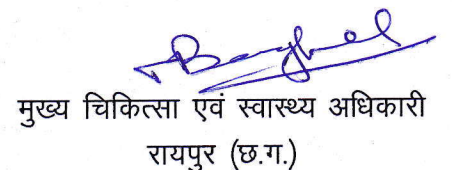 मुख्य चिकित्सा एवं स्वास्थ्य अधिकारी
रायपुर (छ.ग.)